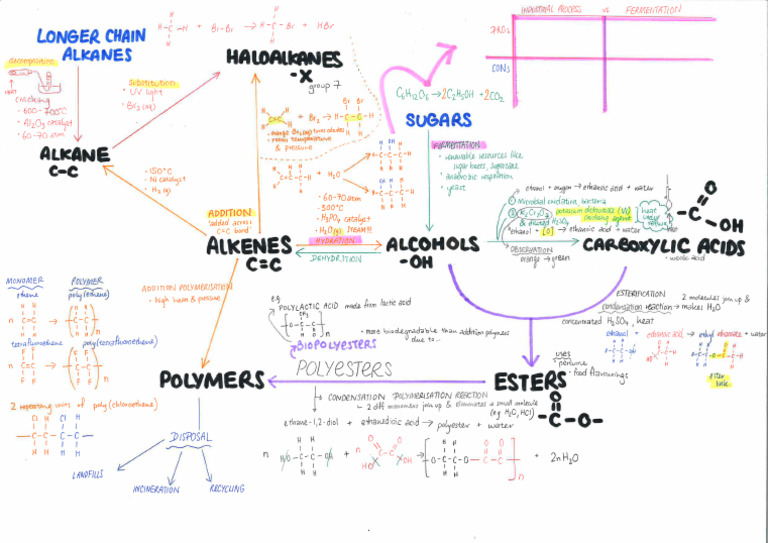 LONGER CHAIN
ALKANES
decomposition
HEAT
cracking
• 600 - 700°C
• Al2O3 catalyst
• 60-70 atm
ALKANE
C-C
substitution
• UV light
• Br2 (aq)
H-C-H + Br-Br → H-C-Br + HBr
HALOALKANES
-X
group 7
C=C + Br2 → H-C-C-H
• room temperature
& pressure
+ H2O
• 60-70 atm
• 300°C
• H3PO4 catalyst
• H2O(g) STEAM!!!
• 150°C
• Ni catalyst
• H2 (g)
ADDITION
"added across
C=C bond"
ALKENES
C=C
HYDRATION
DEHYDRATION
ALCOHOLS
-OH
INDUSTRIAL PROCESS vs FERMENTATION
PROs
CONs
C6H12O6 → 2C2H5OH + 2CO2
SUGARS
FERMENTATION
• renewable resources like
sugar beets, sugarcane
• anaerobic respiration
• yeast
ethanol + oxygen → ethanoic acid + water
① Microbial oxidation, bacteria
② K2Cr2O7 potassium dichromate (VI)
& diluted H2SO4 oxidising agent
heat
under
reflux
ethanol + [O] → ethanoic acid + water
OBSERVATION
orange → green
-C
O
OH
CARBOXYLIC ACIDS
• weak acid
MONOMER POLYMER
ethene poly(ethene)
tetrafluoroethene poly(tetrafluoroethene)
2 repeating units of poly(chloroethene)
ADDITION POLYMERISATION
• high heat & pressure
e.g.
POLYLACTIC ACID made from lactic acid
• more biodegradable than addition polymers
due to...
BIOPOLYESTERS
ESTERIFICATION 2 molecules join up &
condensation reaction → makes H2O
concentrated H2SO4, heat
ethanol + ethanoic acid → ethyl ethanoate + water
ester
link
uses
• perfume
• food flavourings
POLYMERS
POLYESTERS
ESTERS
O
-C-O-
DISPOSAL
LANDFILLS
INCINERATION
RECYCLING
↳ CONDENSATION POLYMERISATION REACTION
↳ 2 diff monomers join up & eliminates a small molecule
(e.g. H2O, HCl)
ethane-1,2-diol + ethanedioic acid → polyester + water
n HO-C-C-OH + → + 2n H2O